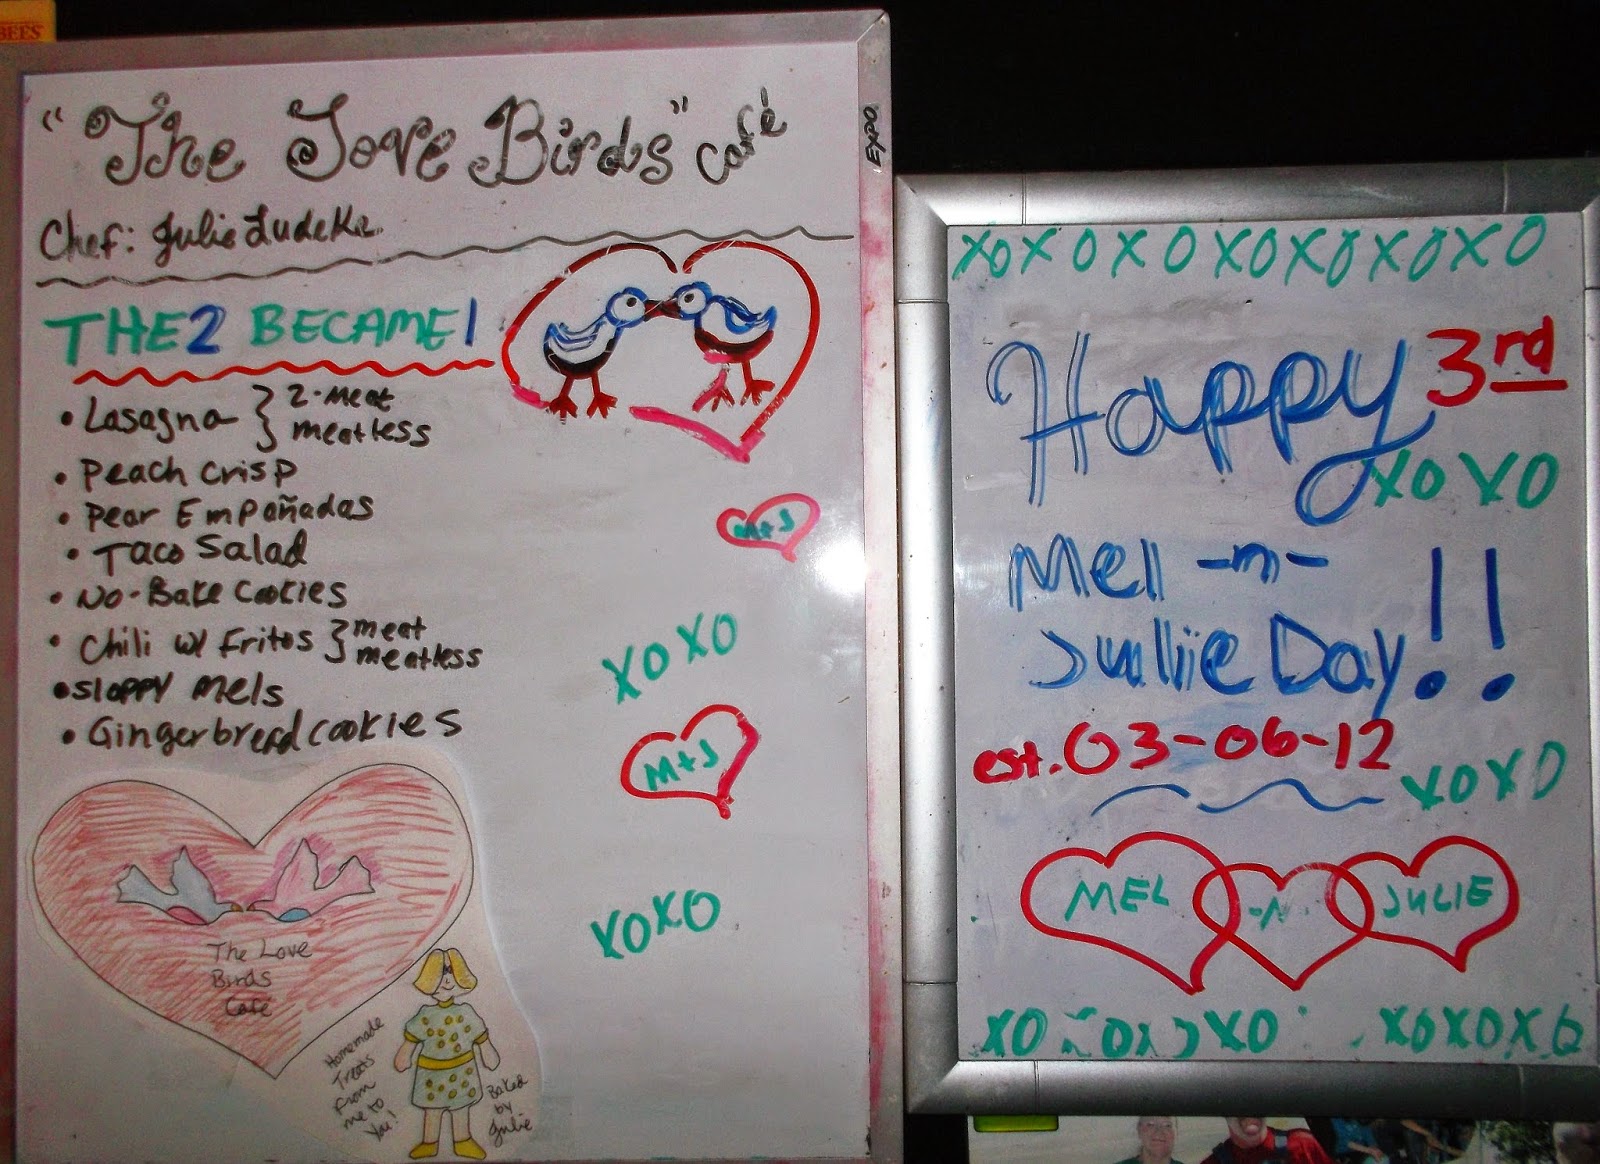 BEES
"The Love Birds" café
EXPO
Chef: Julie Ludeke
THE 2 BECAME 1
• Lasagna } 2-meat
meatless
• Peach Crisp
• Pear Empañadas
• Taco Salad
• No-Bake Cookies
• Chili w/ Fritos } meat
meatless
• Sloppy Mels
• Gingerbread cookies
M+J
XOXO
M+J
XOXO
The Love
Birds
Café
Homemade
Treats
From
me to
You!
Baked
by
Julie
XOXOXOXOXOXOXO
Happy 3rd
XOXO
Mel -n-
Julie Day!!
est. 03-06-12
XOXO
MEL -N- JULIE
XO XOXO XOXOXO